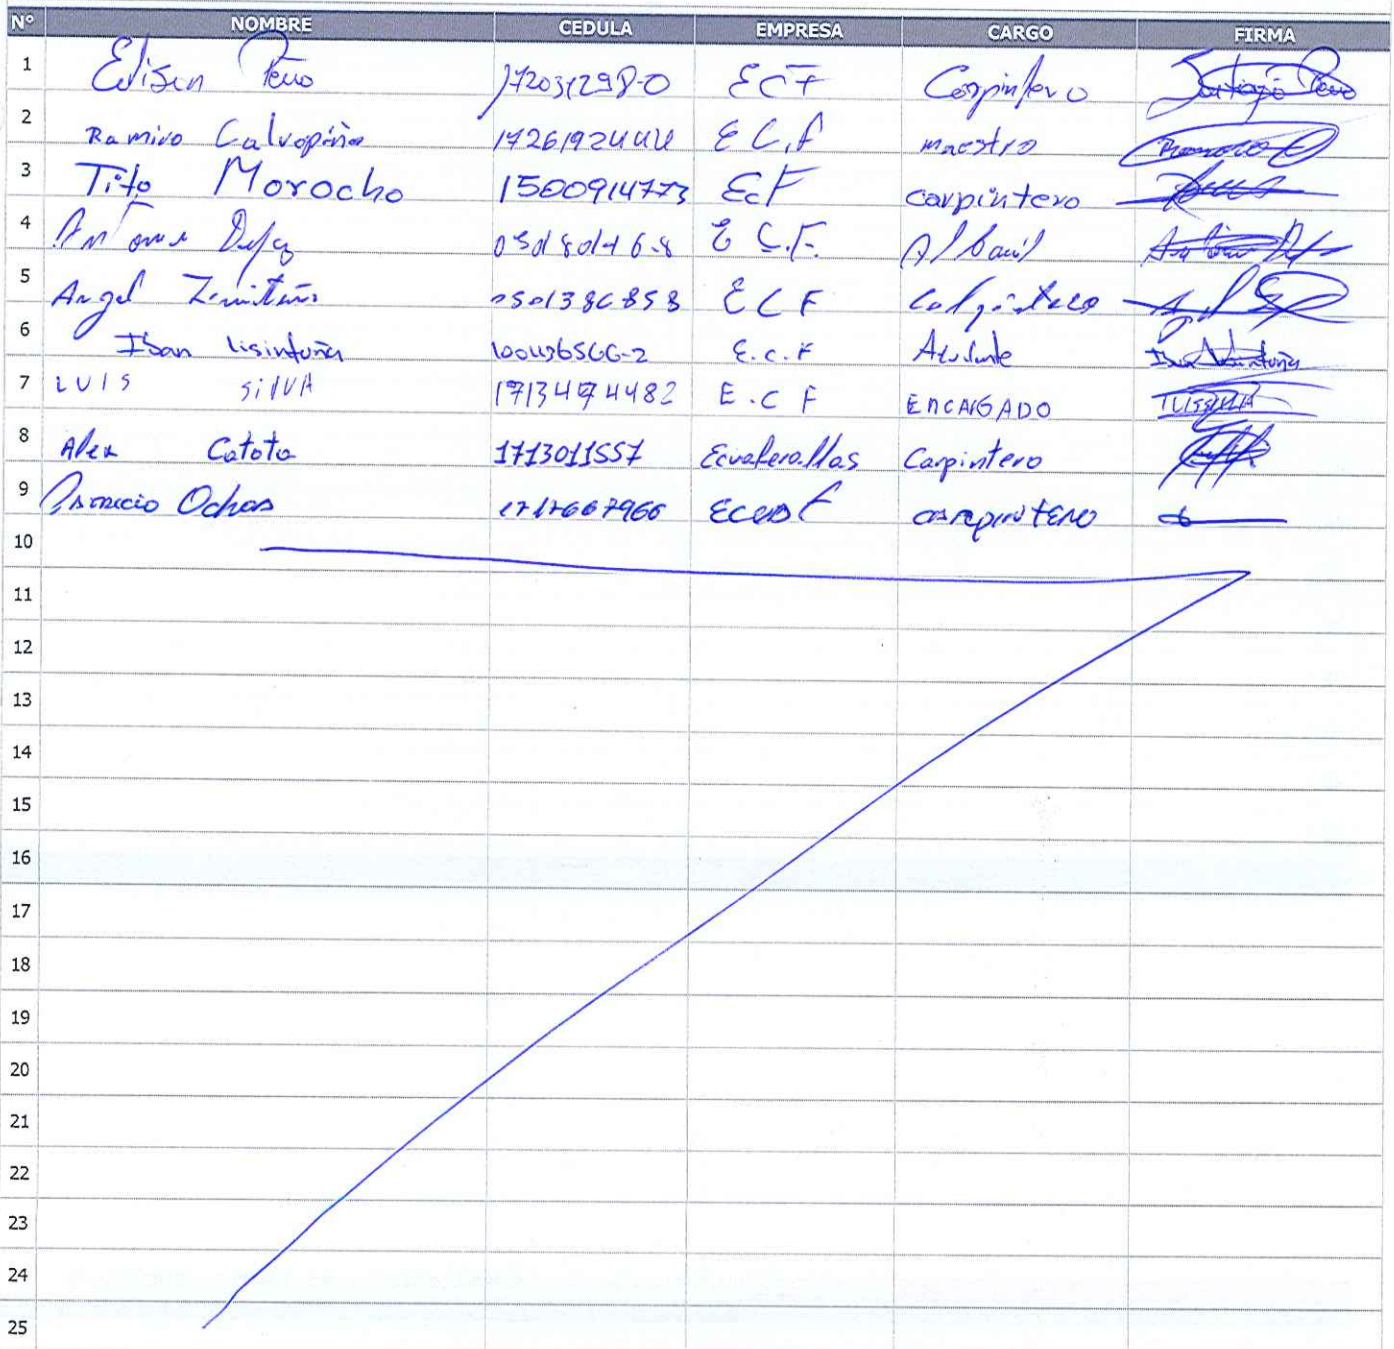 N° NOMBRE CEDULA EMPRESA CARGO FIRMA
1 Edison Peño 172031298-0 ECF Carpintero Santiago Peño
2 Ramiro Calvopiña 1726192444 E C.F maestro
3 Tito Morocho 1500914773 EcF carpintero
4 Antonio Defaz E C.F. Albanil
5 Angel E C F
6 Iban lisintuña 100436566-2 E.c.F Ayudante Iban lisintuña
7 LUIS SilVA E.C F ENCARGADO
8 Alex Catota 1713011557 Carpintero
9 Patricio Ochoa 1717667966 carpintero
10
11
12
13
14
15
16
17
18
19
20
21
22
23
24
25